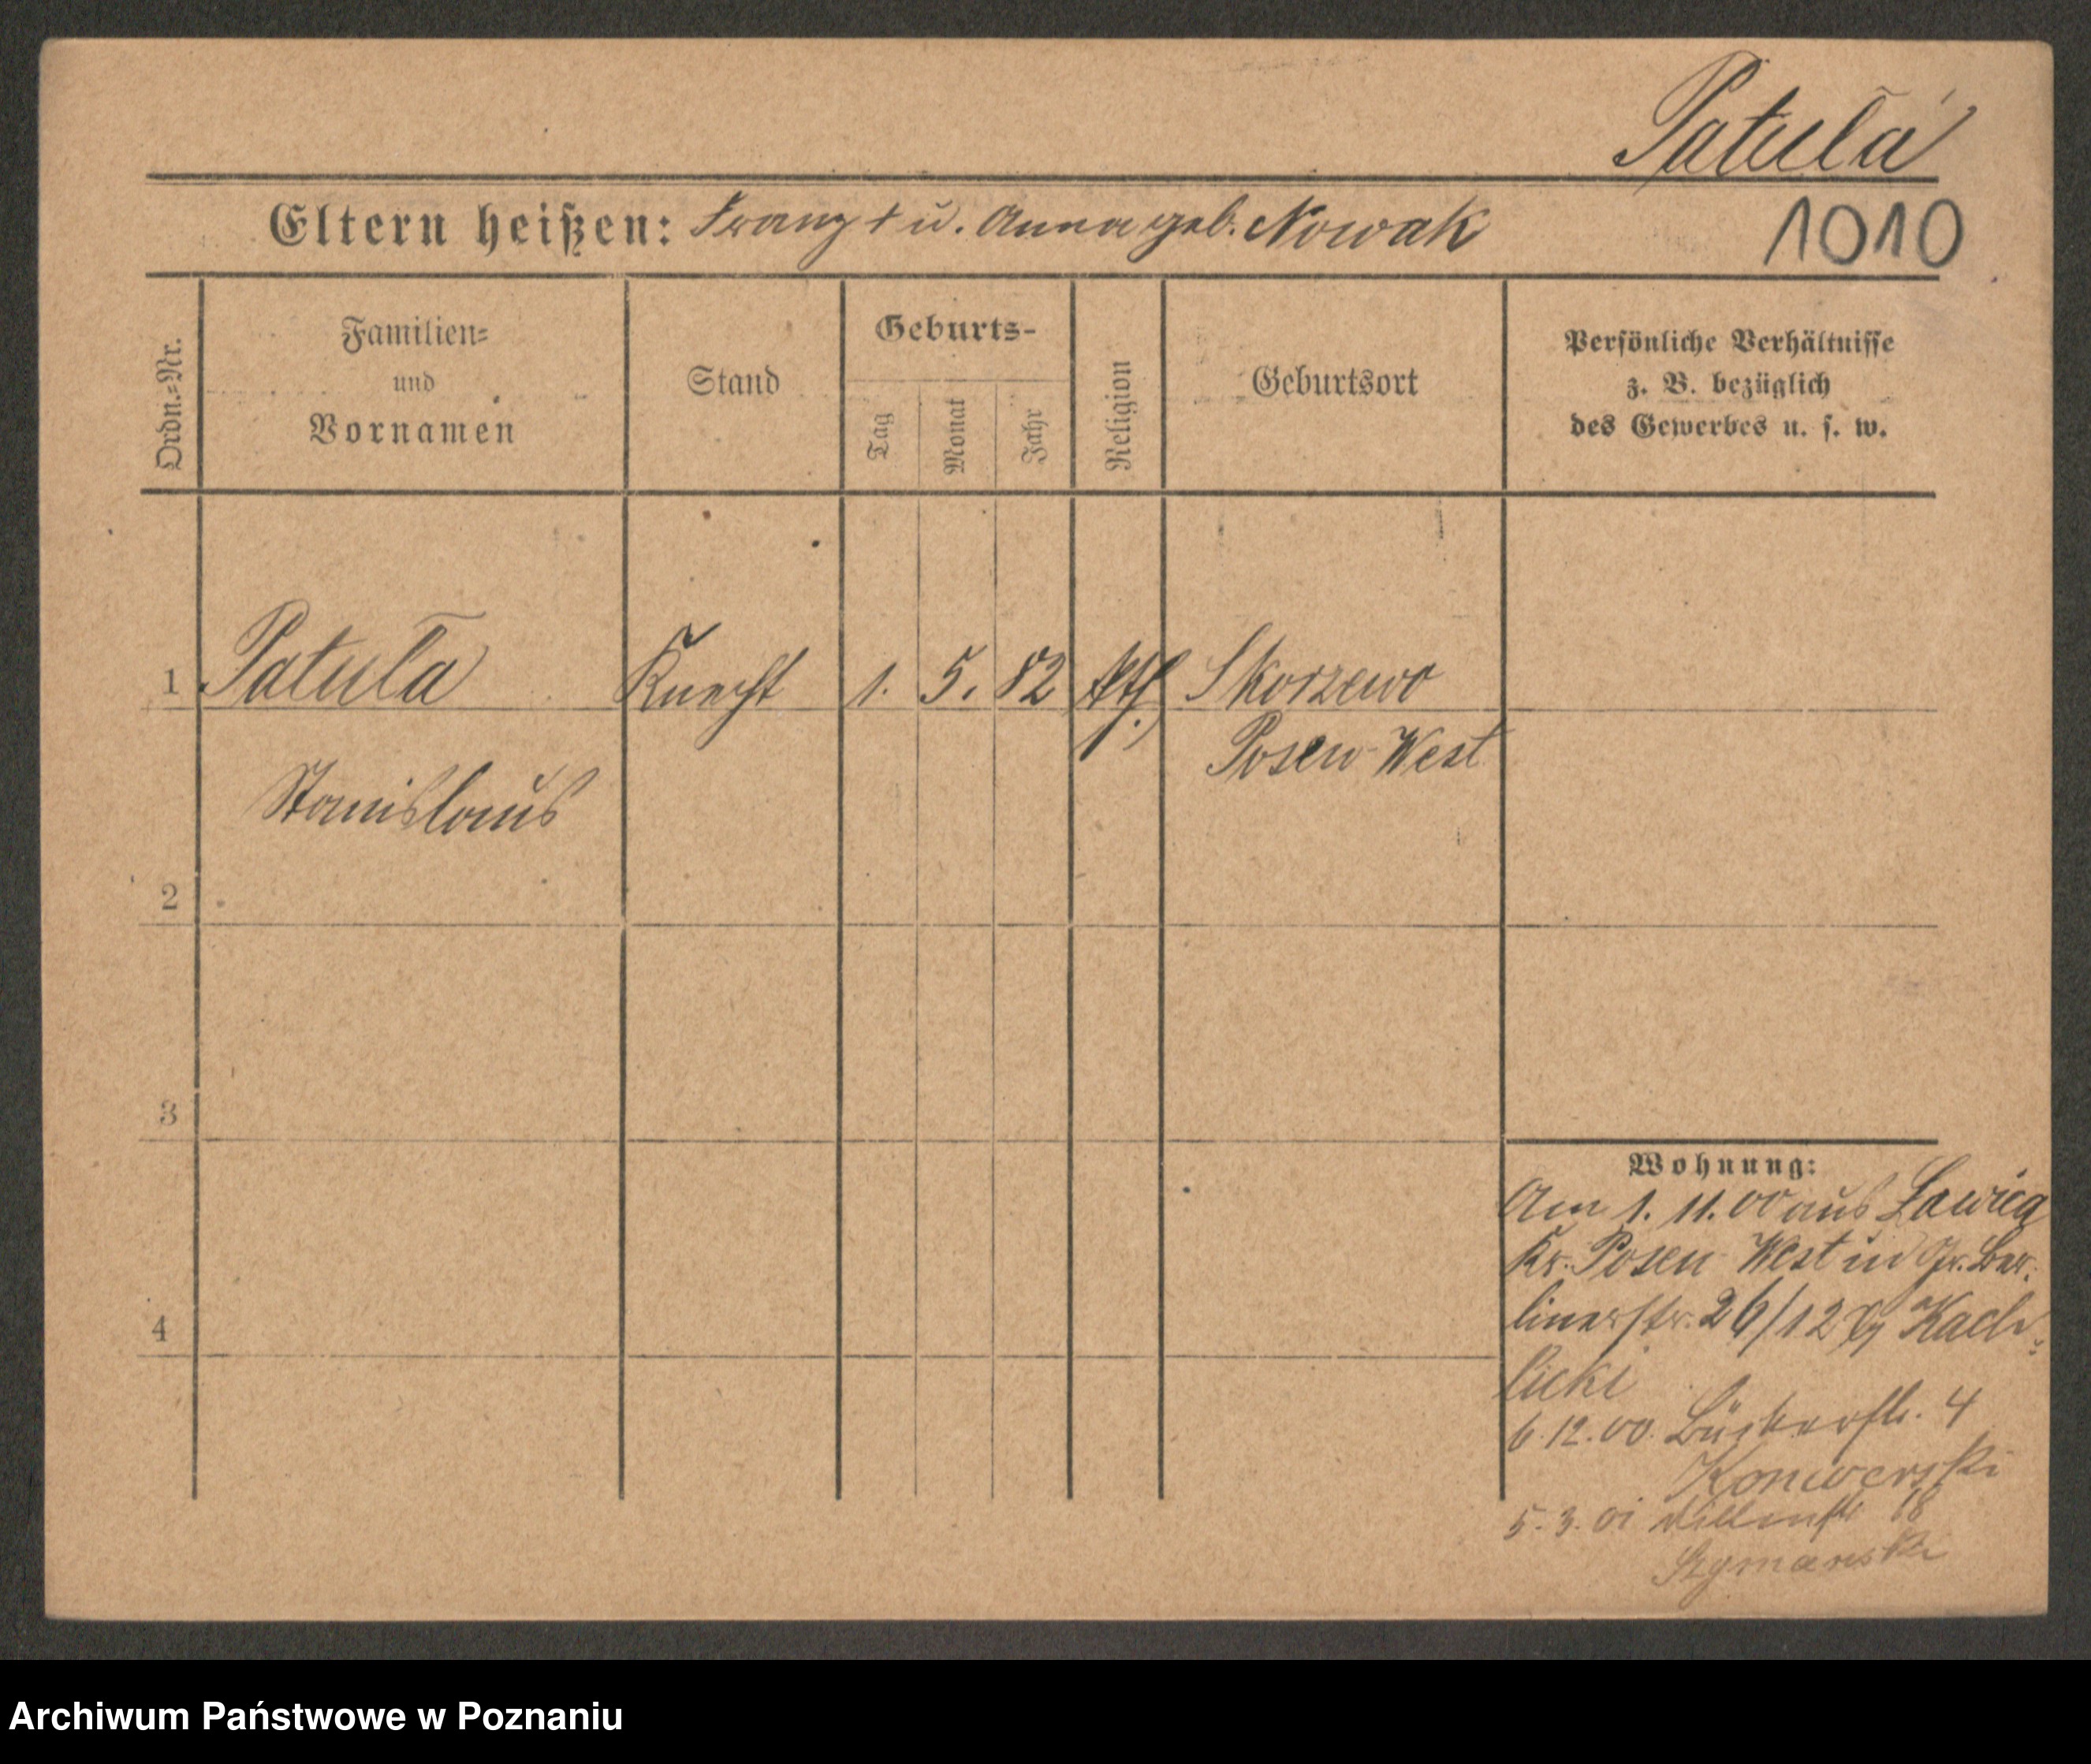 Patuła
Eltern heißen: Franz † u. Anna geb. Nowak
1010
Ordn.-Nr.
Familien-
und
Vornamen
Stand
Geburts-
Tag
Monat
Jahr
Religion
Geburtsort
Persönliche Verhältnisse
z. B. bezüglich
des Gewerbes u. s. w.
1 Patuła Knecht 1. 5. 82 kth. Skorzewo
Posen-West
Stanislaus
2
3
4
Wohnung:
Am 1. 11. 00 aus Ławica
Kr. Posen West in Gr. Ber-
linerstr. 26/12 Kach-
licki
6. 12. 00. Bäckerstr. 4
Konwerski
5. 3. 01 18
Szymanski
Archiwum Państwowe w Poznaniu